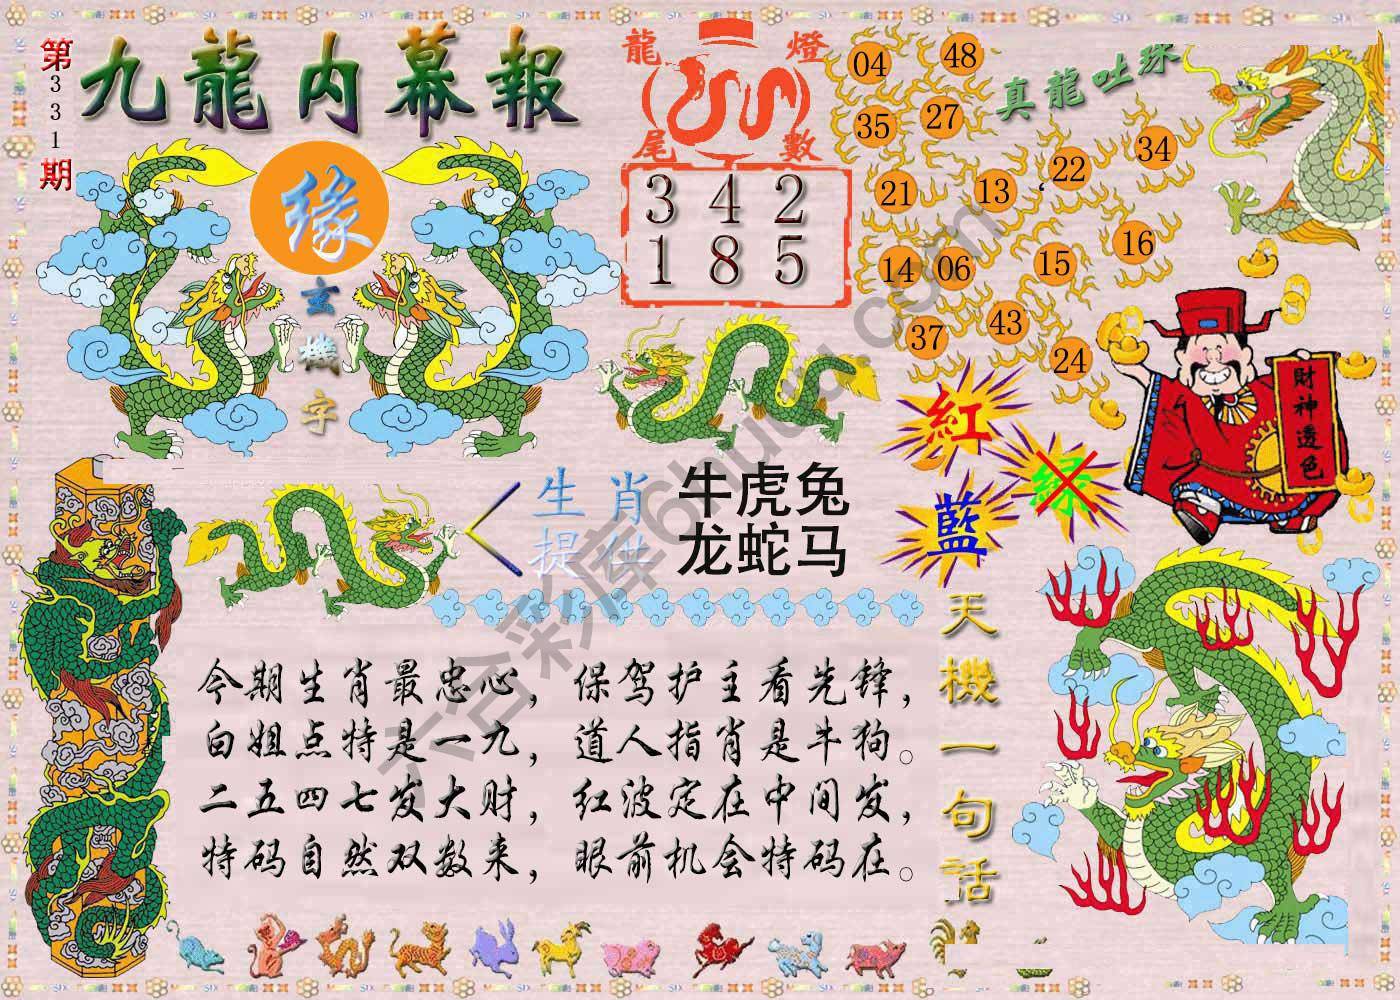 第331期
九龍内幕報
緣
玄機字
龍燈
尾數
3 4 2
1 8 5
真龍吐珠
04 48
35 27
22 34
21 13
14 06 15 16
37 43
24
財神透色
紅
藍 绿
生肖 牛虎兔
提供 龙蛇马
天機一句话
今期生肖最忠心，保驾护主看先锋，
白姐点特是一九，道人指肖是牛狗。
二五四七发大财，红波定在中间发，
特码自然双数来，眼前机会特码在。
六合彩库6huuu.com